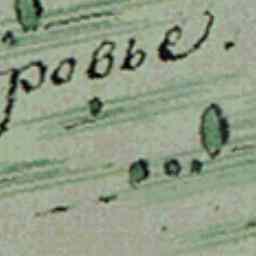 ровье.